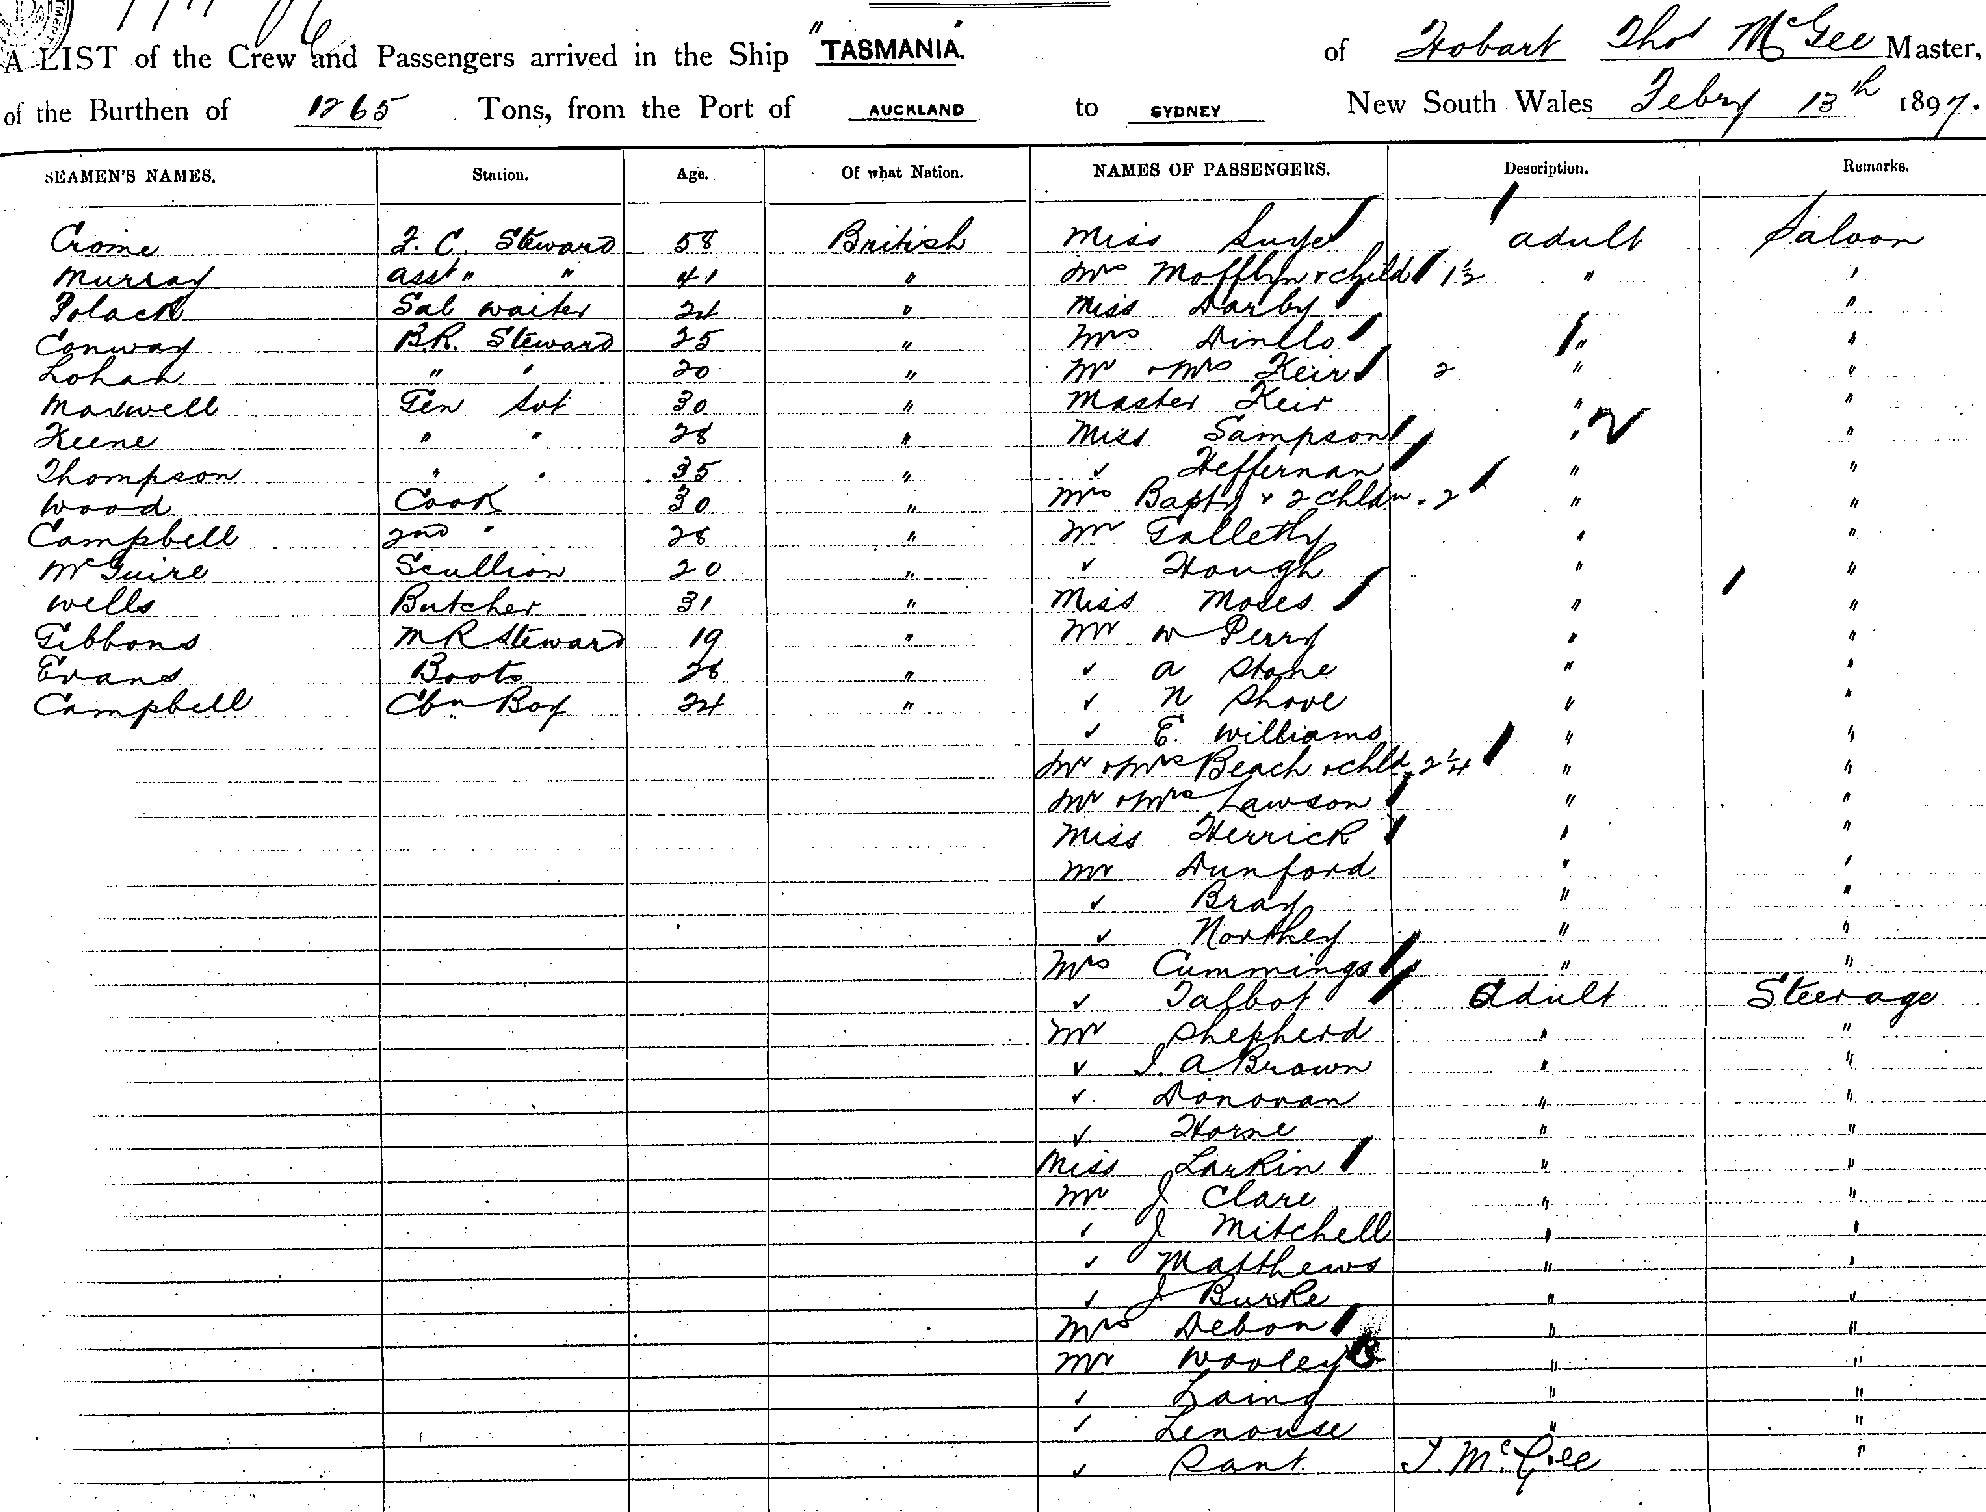 A LIST of the Crew and Passengers arrived in the Ship "TASMANIA". of Hobart Thos McGee Master,
of the Burthen of 1265 Tons, from the Port of AUCKLAND to SYDNEY New South Wales Febry 13th 1897.
SEAMEN'S NAMES. Station. Age. Of what Nation. NAMES OF PASSENGERS. Description. Remarks.
Crome F. C. Steward 58 British Miss adult Saloon
Murray asst " " 41 " Mrs Mofflyn & child 1½ " "
Polack Sal waiter 24 " Miss Darby "
Conway B.R. Steward 25 " Mrs Dinelo " "
Lohan " " 20 " Mr & Mrs Keir 2 " "
Maxwell Gen Svt 30 " Master Keir " "
Keene " " 28 " Miss Sampson " "
Thompson " " 35 " " Heffernan " "
Wood Cook 30 " Mrs Bapty & 2 chldn. 2 " "
Campbell 2nd " 28 " Mr Galletly " "
McGuire Scullion 20 " " Hough " "
Wells Butcher 31 " Miss Moses " "
Gibbons M R Steward 19 " Mr W Perry " "
Evans Boots 28 " " A Stone " "
Campbell Cbn Boy 24 " " N Shove " "
" E. Williams " "
Mr & Mrs Beach & chld. 2¼ " "
Mr & Mrs Lawson " "
Miss Herrick " "
Mr Dunford " "
" Bray " "
" Northey " "
Mrs Cummings " "
" Talbot Adult Steerage
Mr Shepherd " "
" J. A Brown " "
" Donovan " "
" Horne " "
Miss Larkin " "
Mr J Clare " "
" J Mitchell " "
" Matthews " "
" J Burke " "
Mrs Debon " "
Mr Wooley " "
" Laing " "
" Lenouse " "
" Pant T. McGee "